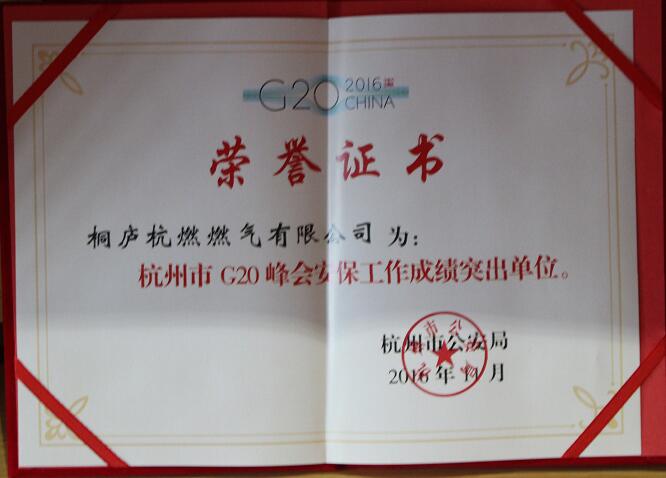 G20 2016
CHINA
荣誉证书
桐庐杭燃燃气有限公司 为：
杭州市 G20 峰会安保工作成绩突出单位。
杭州市公安局
2016 年 11 月